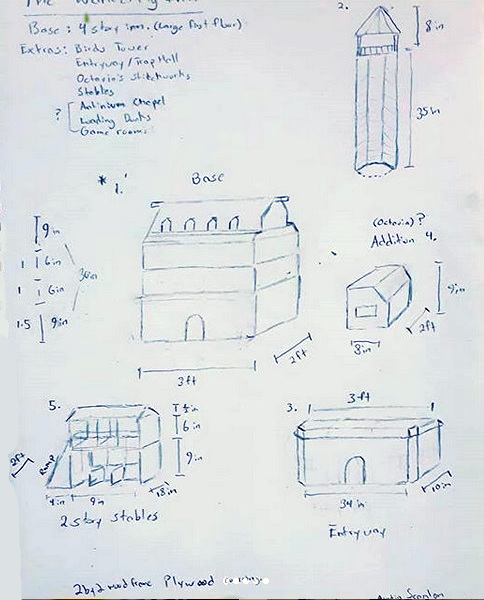 The Wandering Inn
Base: 4 story inn. (Large first floor)
Extras: Birds Tower
Entryway/Trap Hall
Octavia's Stitchworks
Stables
? Antinium Chapel
Landing Dock
Game rooms
2.
8in
35in
* 1.
Base
9in
1 6in
1 6in
1.5 9in
30in
3ft
2ft
(Octavia)?
Addition 4.
9in
2ft
8in
5.
4in
6in
9in
2ft
Ramp
4in
9in
18in
2 story stables
3.
3ft
34 in
10in
Entryway
2by2 wood frame Plywood